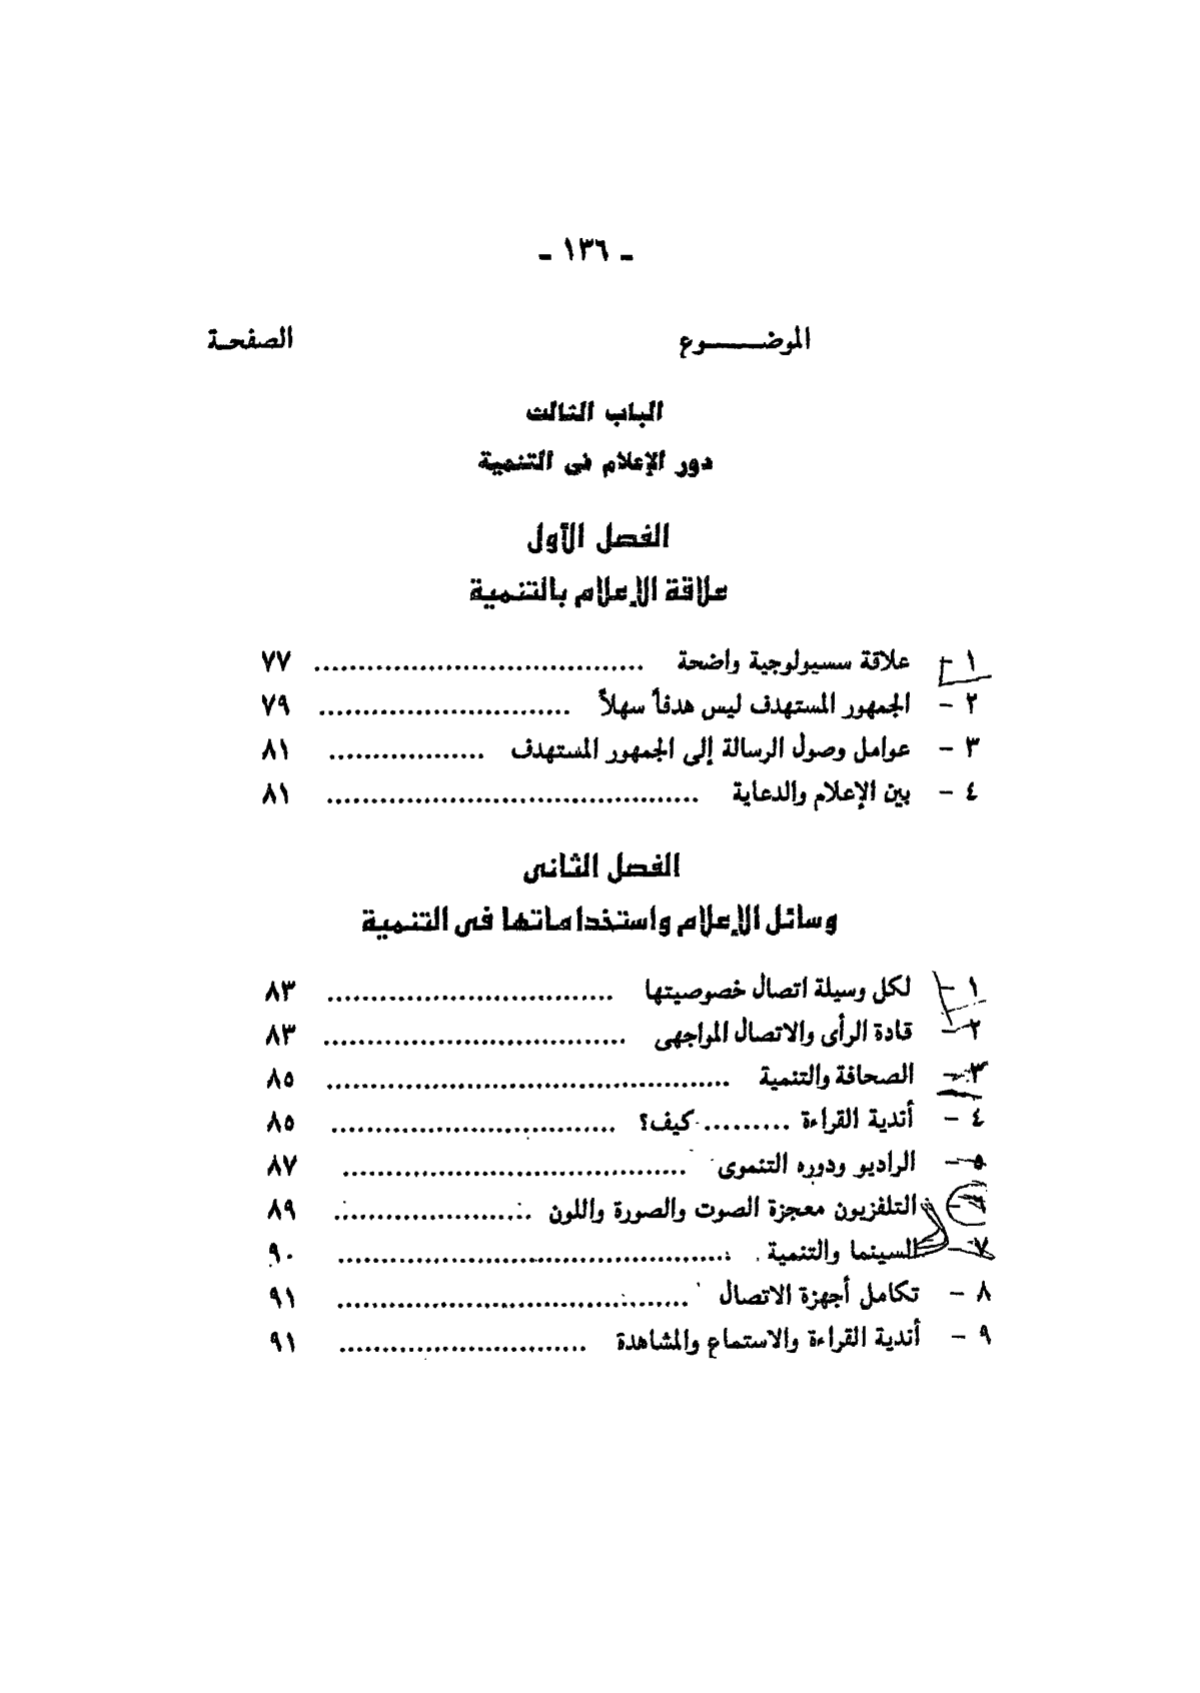 - ١٣٦ -
الموضـــــوع الصفحـة
الباب الثالث
دور الإعلام فى التنمية
الفصل الأول
علاقة الإعلام بالتنمية
١ - علاقة سسيولوجية واضحة ..................................... ٧٧
٢ - الجمهور المستهدف ليس هدفاً سهلاً ............................ ٧٩
٣ - عوامل وصول الرسالة إلى الجمهور المستهدف .................. ٨١
٤ - بين الإعلام والدعاية .......................................... ٨١
الفصل الثانى
وسائل الإعلام واستخداماتها فى التنمية
١ - لكل وسيلة اتصال خصوصيتها ................................ ٨٣
٢ - قادة الرأى والاتصال المواجهى .................................. ٨٣
٣ - الصحافة والتنمية ............................................. ٨٥
٤ - أندية القراءة .......... كيف؟ ................................ ٨٥
٥ - الراديو ودوره التنموى ....................................... ٨٧
٦ - التلفزيون معجزة الصوت والصورة واللون ...................... ٨٩
٧ - السينما والتنمية ............................................ ٩٠
٨ - تكامل أجهزة الاتصال ........................................ ٩١
٩ - أندية القراءة والاستماع والمشاهدة ............................ ٩١